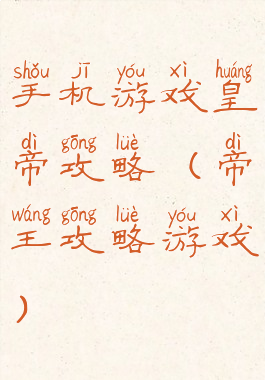 shǒu jī yóu xì huáng
手机游戏皇
dì gōng lüè dì
帝攻略（帝
wáng gōng lüè yóu xì
王攻略游戏
）